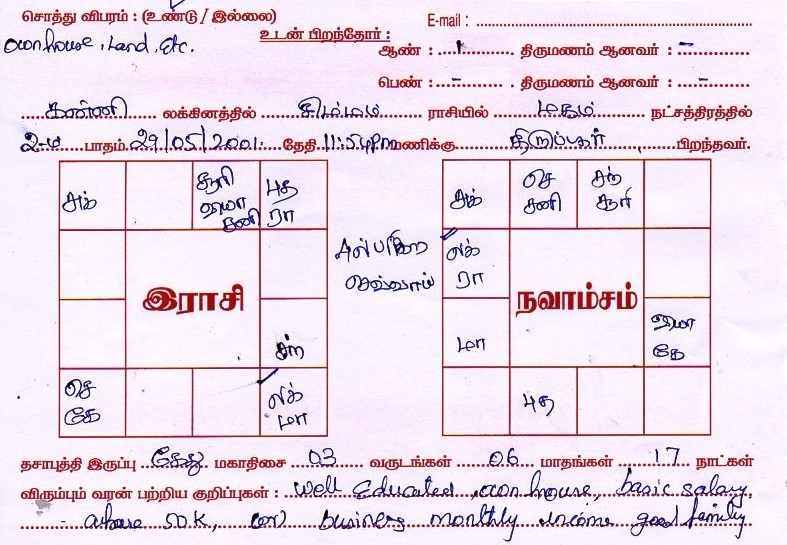 சொத்து விபரம் : (உண்டு / இல்லை)
own house, Land, Etc.
E-mail :
உடன் பிறந்தோர் :
ஆண் : 1 திருமணம் ஆனவர் : -
பெண் : - திருமணம் ஆனவர் : -
கன்னி லக்கினத்தில் சிம்மம் ராசியில் மகம் நட்சத்திரத்தில்
2-ம் பாதம் 29/05/2001 தேதி 11:54 PM மணிக்கு திருப்பூர் பிறந்தவர்.
சுக்
சூரி
குரு
சனி
புத
ரா
இராசி
சந்
செ
கே
லக்
மா
செவ்வாய்
சுக்
செ
சனி
சந்
சூரி
லக்
ரா
நவாம்சம்
மா
குரு
கே
புத
தசாபுத்தி இருப்பு கேது மகாதிசை 03 வருடங்கள் 06 மாதங்கள் 17 நாட்கள்
விரும்பும் வரன் பற்றிய குறிப்புகள் : Well Educated, own house, basic salary,
above 50K, (or) business monthly income good family